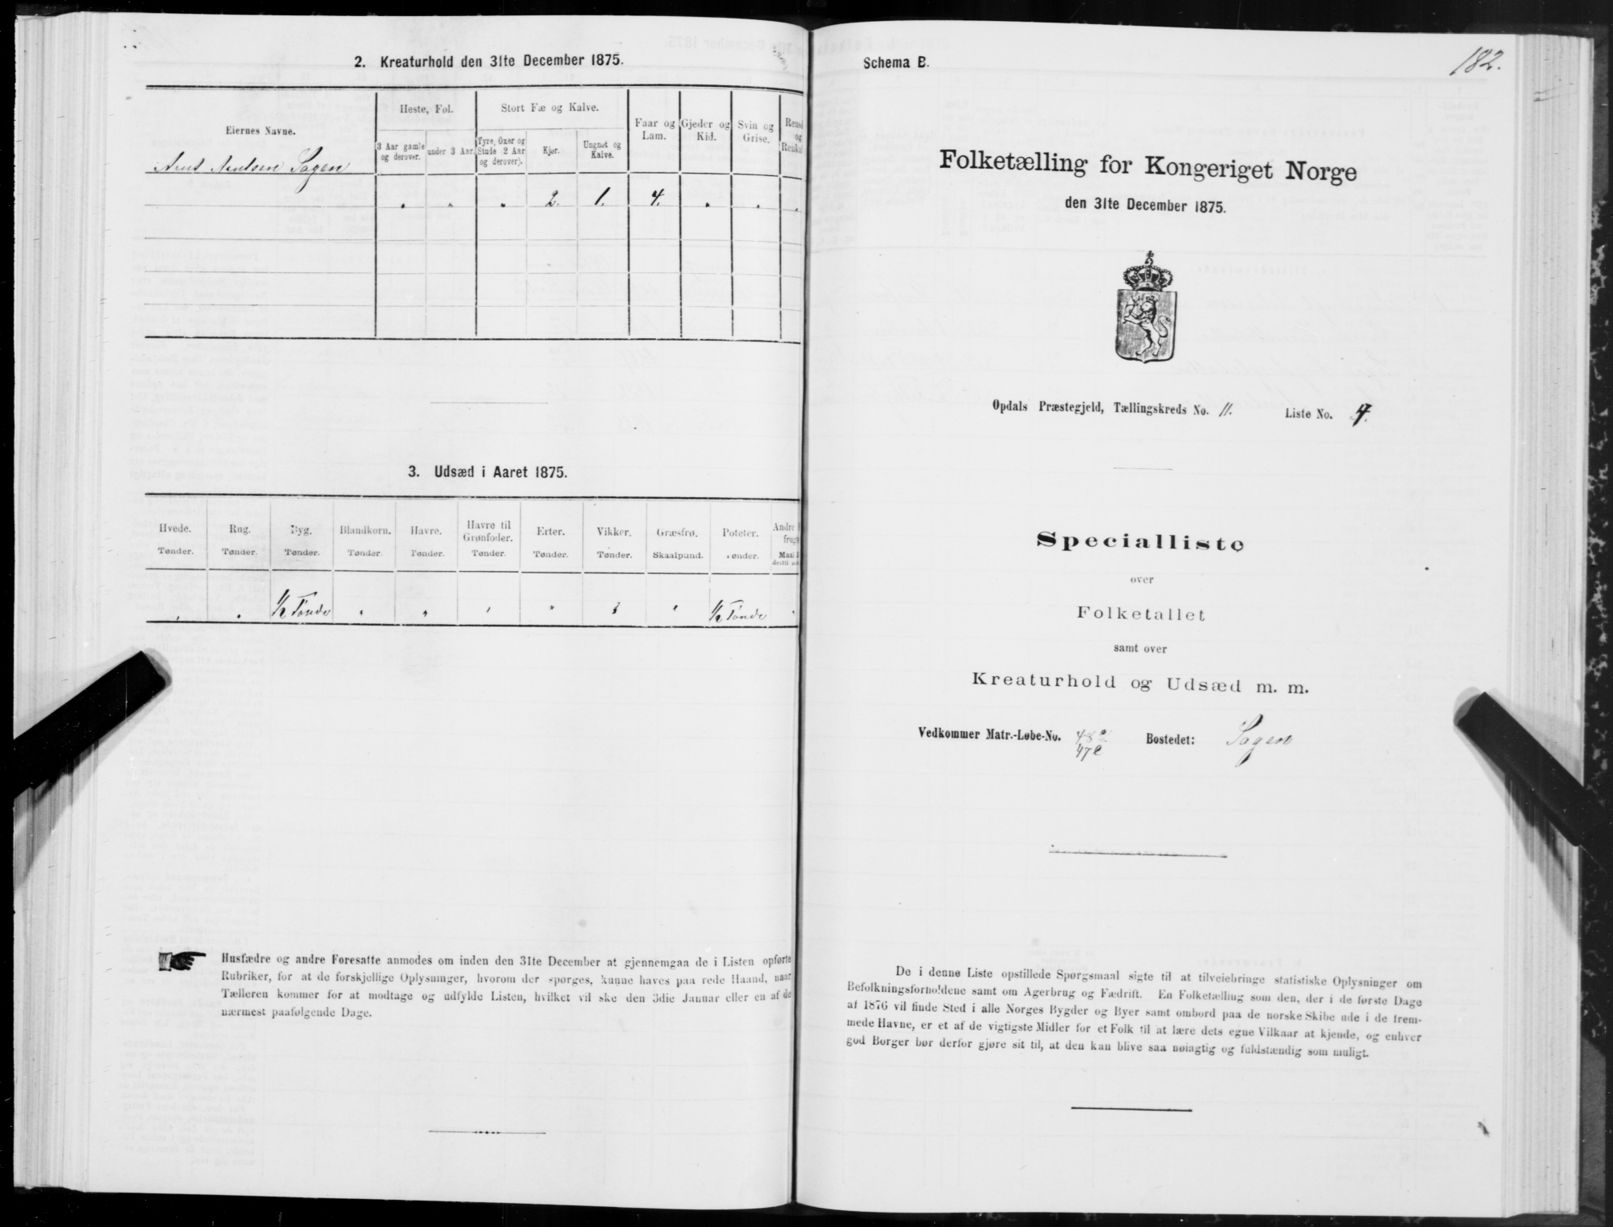 2. Kreaturhold den 31te December 1875.
Eiernes Navne.
Heste, Føl.
Stort Fæ og Kalve.
Faar og Lam.
Gjeder og Kid.
Svin og Grise.
og
3 Aar gamle og derover.
under 3 Aar.
Tyre, Oxer og Stude 2 Aar og derover).
Kjør.
Ungnøt og Kalve.
Sagen
. " . 2. 1. 4. . . .
3. Udsæd i Aaret 1875.
Hvede. Rug. Byg. Blandkorn. Havre. Havre til Grønfoder. Erter. Vikker. Græsfrø. Poteter. Andre
Tønder. Tønder. Tønder. Tønder. Tønder. Tønder. Tønder. Tønder. Skaalpund. Tønder.
1/2 Tønde 1/2 Tønde
Husfædre og andre Foresatte anmodes om inden den 31te December at gjennemgaa de i Listen opførte
Rubriker, for at de forskjellige Oplysninger, hvorom der spørges, kunne haves paa rede Haand, naar
Tælleren kommer for at modtage og udfylde Listen, hvilket vil ske den 3die Januar eller en af de
nærmest paafølgende Dage.
Schema B.
182.
Folketælling for Kongeriget Norge
den 31te December 1875.
Opdals Præstegjeld, Tællingskreds No. 11. Liste No. 4.
Specialliste
over
Folketallet
samt over
Kreaturhold og Udsæd m. m.
Vedkommer Matr.-Løbe-No. 48 Bostedet: Sagen
47
De i denne Liste opstillede Spørgsmaal sigte til at tilveiebringe statistiske Oplysninger om
Befolkningsforholdene samt om Agerbrug og Fædrift. En Folketælling som den, der i de første Dage
af 1876 vil finde Sted i alle Norges Bygder og Byer samt ombord paa de norske Skibe ude i de frem-
mede Havne, er et af de vigtigste Midler for et Folk til at lære dets egne Vilkaar at kjende, og enhver
god Borger bør derfor gjøre sit til, at den kan blive saa nøiagtig og fuldstændig som muligt.